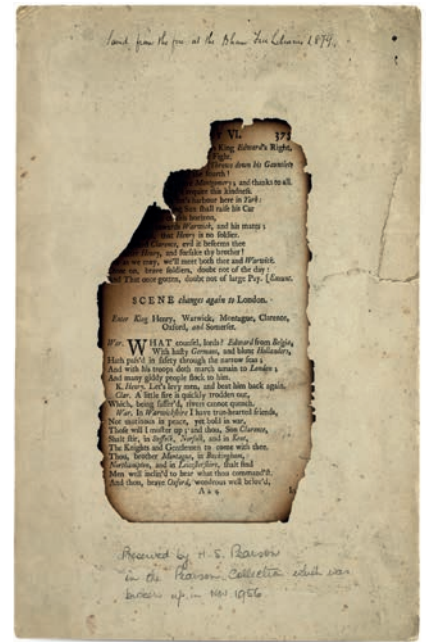 saved from the fire at the Bham Free Library 1879.
VI. 373
King Edward's Right,
Fight.
Throws down his Gauntlet.
fourth!
Montgomery; and thanks to all.
requite this kindness.
harbour here in York:
Sun shall raise his Car
horizon,
Warwick, and his mates;
that Henry is no soldier.
Clarence, evil it beseems thee
Henry, and forsake thy brother!
we may, we'll meet both thee and Warwick.
on, brave soldiers, doubt not of the day:
And That once gotten, doubt not of large Pay. [Exeunt.
SCENE changes again to London.
Enter King Henry, Warwick, Montague, Clarence,
Oxford, and Somerset.
War. WHAT counsel, lords? Edward from Belgia,
With hasty Germans, and blunt Hollanders,
Hath pass'd in safety through the narrow seas;
And with his troops doth march amain to London;
And many giddy people flock to him.
K. Henry. Let's levy men, and beat him back again.
Clar. A little fire is quickly trodden out,
Which, being suffer'd, rivers cannot quench.
War. In Warwickshire I have true-hearted friends,
Not mutinous in peace, yet bold in war,
Those will I muster up; and thou, Son Clarence,
Shalt stir, in Suffolk, Norfolk, and in Kent,
The Knights and Gentlemen to come with thee.
Thou, brother Montague, in Buckingham,
Northampton, and in Leicestershire, shalt find
Men well inclin'd to hear what thou command'st.
And thou, brave Oxford, wondrous well belov'd,
Preserved by H.S. Pearson
in the Pearson Collection which was
broken up in Nov 1956